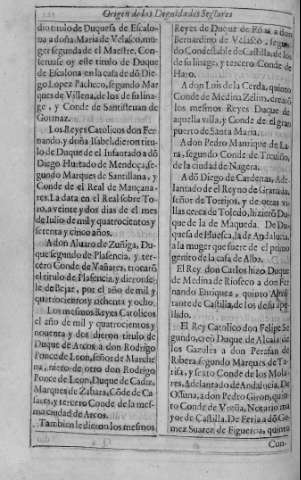 Origen de las Dignidades Seglares
dio titulo de Duquesa de Escalo-
na a doña Maria de Velasco, mu-
ger segunda de el Maestre. Con-
seruase oy este titulo de Duque
de Escalona en la casa de dō Die-
go Lopez Pacheco, segundo Mar-
ques de Villena, de los de su lina-
ge, y Conde de Santisteuan de
Gormaz.
Los Reyes Catolicos don Fer-
nando, y doña Isabel, dieron titu-
lo de Duque de el Infantado a dō
Diego Hurtado de Mendoça, se-
gundo Marques de Santillana, y
Conde de el Real de Mançana-
res. La data en el Real sobre To-
ro, a veinte y dos dias de el mes
de Iulio de mil y quatrocientos y
setenta y cinco años.
A don Aluaro de Zuñiga, Du-
que segundo de Plasencia, y ter-
cero Conde de Vañares, trocarō
el titulo de Plasencia, y dieronse-
le de Bejar, por el año de mil y
quatrocientos y ochenta y ocho.
Los mesmos Reyes Catolicos
el año de mil y quatrocientos y
nouenta y dos dieron titulo de
Duque de Arcos a don Rodrigo
Ponce de Leon, señor de Marche-
na, nieto de otro don Rodrigo
Ponce de Leon, Duque de Cadiz,
Marques de Zahara, Cōde de Ca-
sares, y tercero Conde de la mes-
ma ciudad de Arcos.
Tambien le dieron los mesmos
Reyes de Duque de Frias a don
Bernardino de Velasco, segun-
do Condestable de Castilla, de los
de su linage, y tercero Conde de
Haro.
A don Luis de la Cerda, quinto
Conde de Medina Zelim, dieron
los mesmos Reyes Duque de
aquella villa, y Conde de el gran
puerto de Santa Maria.
A don Pedro Manrique de La-
ra, segundo Conde de Treuiño,
de la ciudad de Nagera.
A dō Diego de Cardenas, Ade-
lantado de el Reyno de Granada,
señor de Torrijos, y de otras vi-
llas cerca de Toledo, hizierō Du-
que de la de Maqueda. De Du-
quesa de Huesca, la de Andalucia,
a la muger que fuere de el primo
genito de la casa de Alba.
El Rey don Carlos hizo Duque
de Medina de Rioseco a don Fer-
nando Enriquez, quinto Almi-
rante de Castilla, de los de su ape-
llido.
El Rey Catolico don Felipe Se
gundo, creò Duque de Alcala de
los Gazules a don Perafan de
Ribera segundo Marques de Ta-
rifa, y sexto Conde de los Mola-
res, Adelantado de Andalucia. De
Ossuna, a don Pedro Giron, quin-
to Conde de Vreña, Notario ma-
yor de Castilla. De Feria a dō Go-
mez Suarez de Figueroa, quinto
Con-